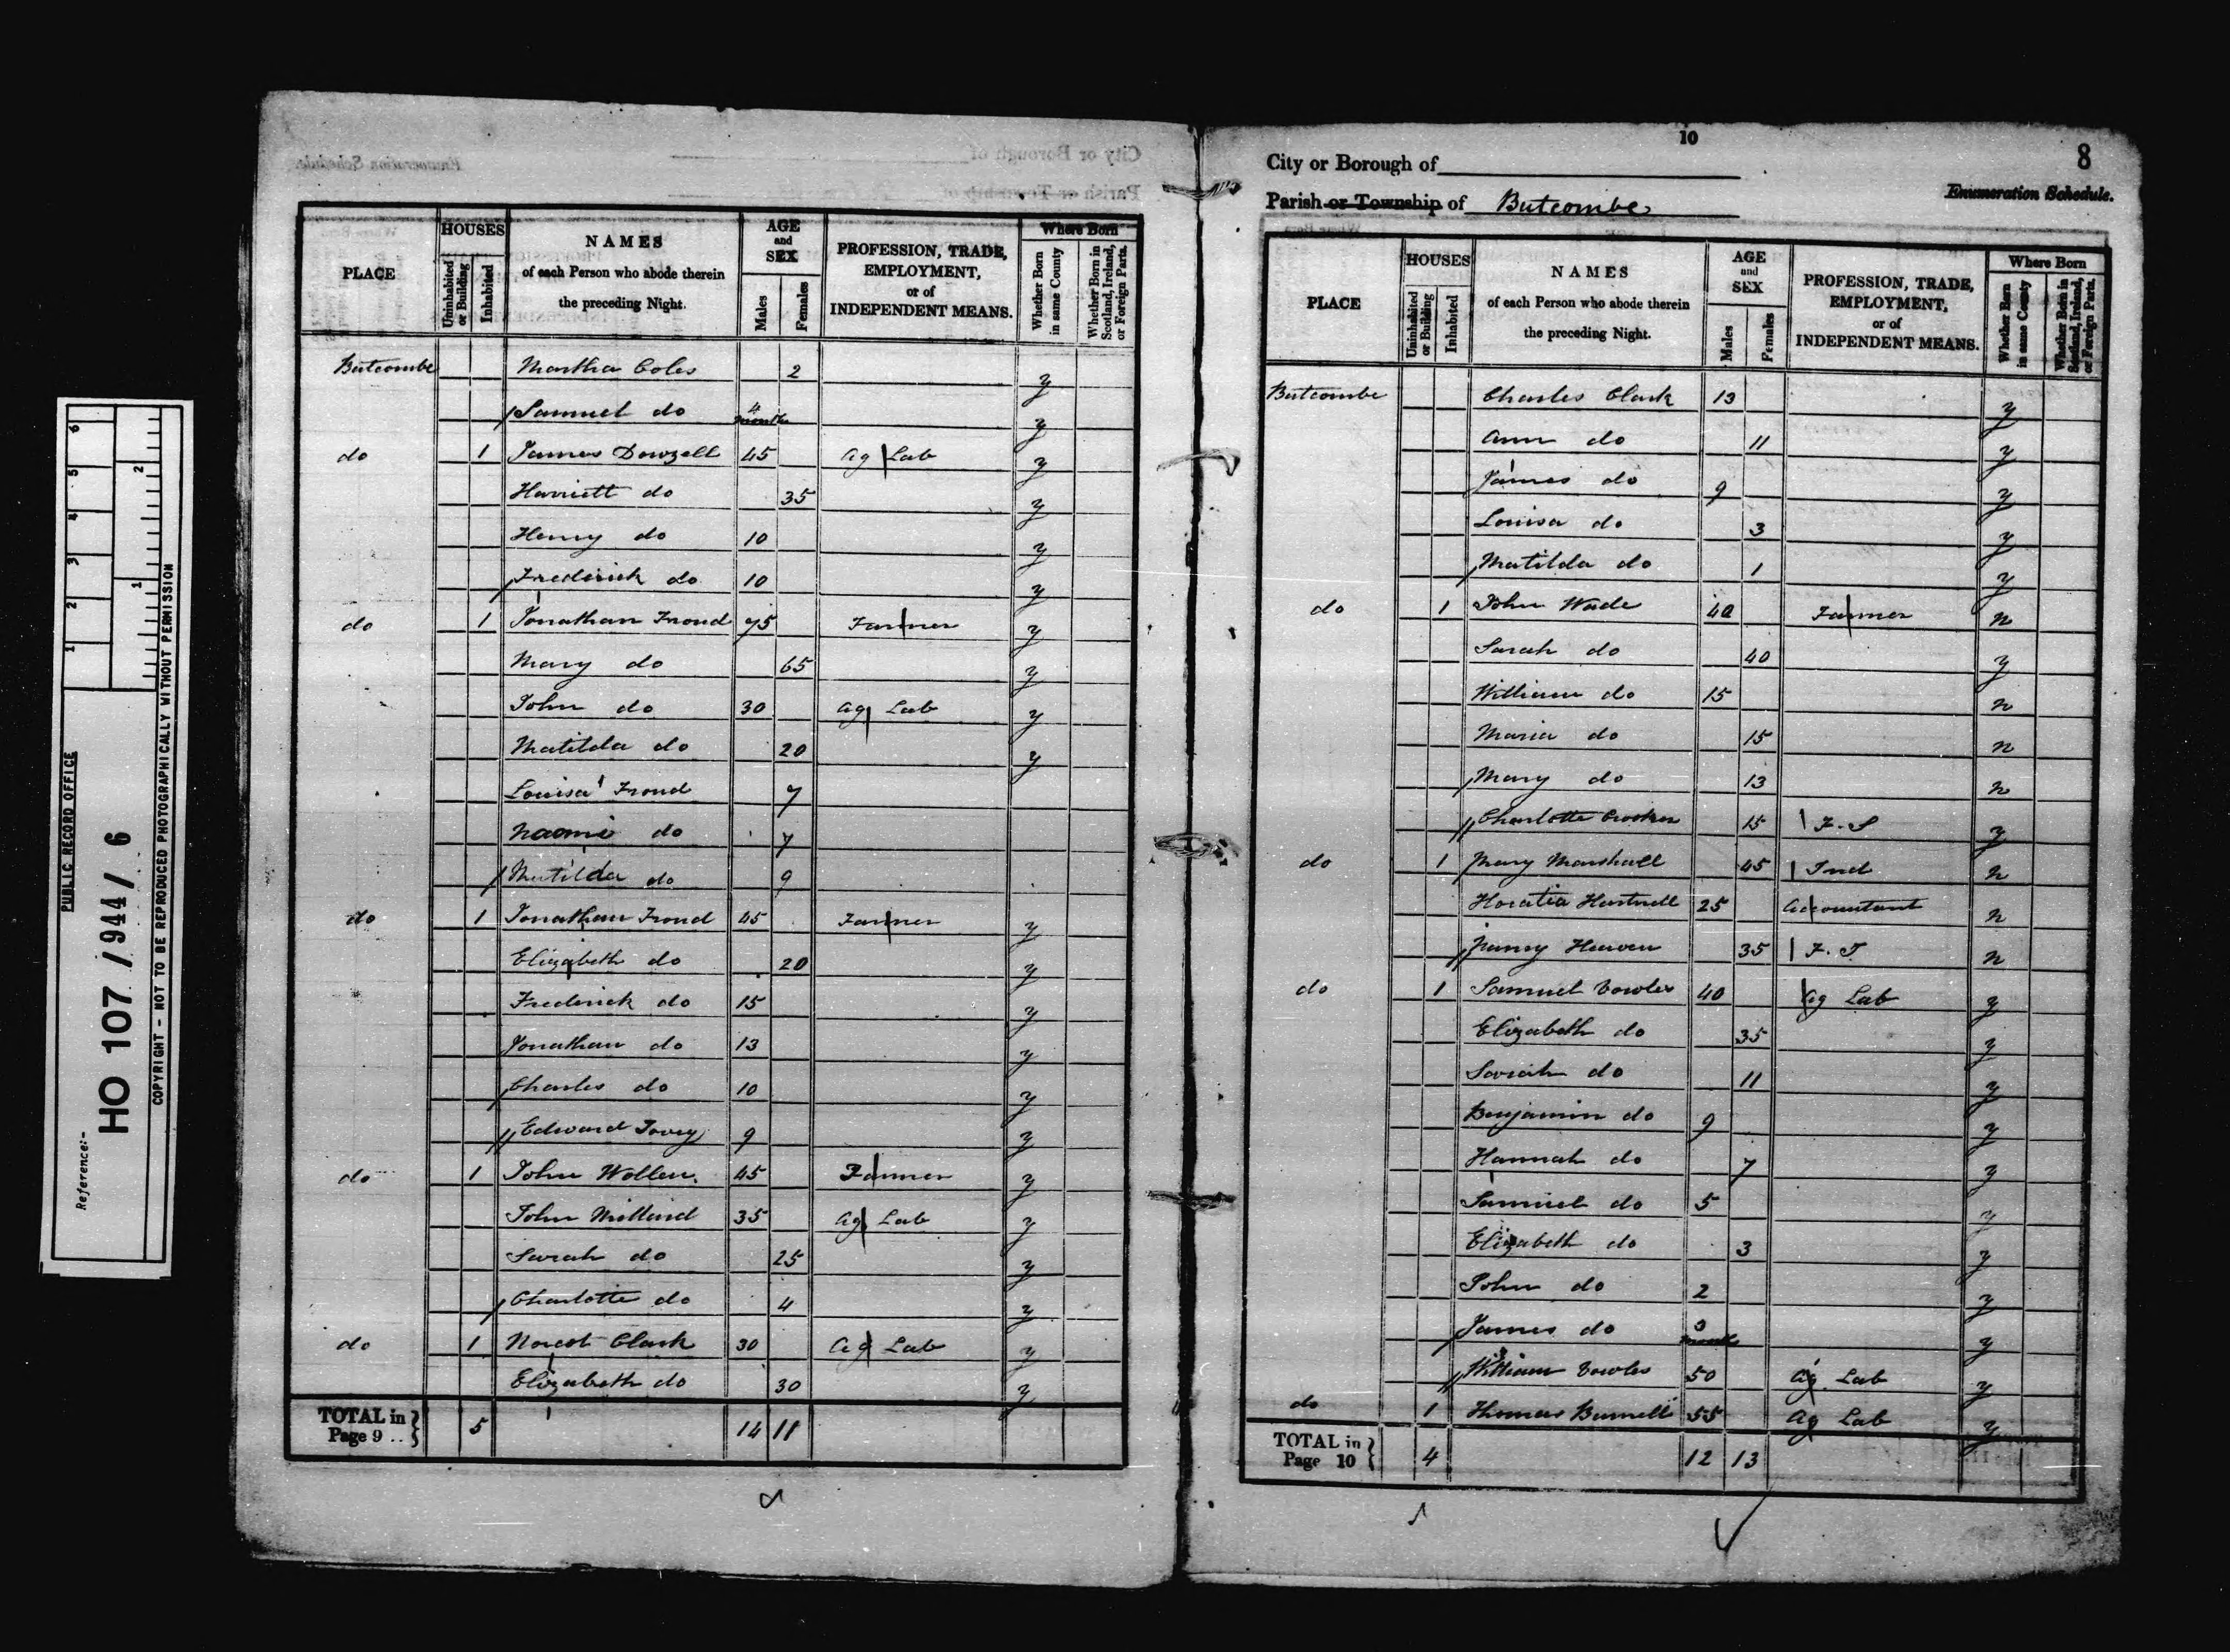 PUBLIC RECORD OFFICE
Reference:-
HO 107 / 944 / 6
COPYRIGHT - NOT TO BE REPRODUCED PHOTOGRAPHICALLY WITHOUT PERMISSION
1 2 3 4 5 6
1 2
City or Borough of
Enumeration Schedule.
Parish or Township of
PLACE
HOUSES
Uninhabited or Building
Inhabited
NAMES
of each Person who abode therein
the preceding Night.
AGE
and
SEX
Males
Females
PROFESSION, TRADE,
EMPLOYMENT,
or of
INDEPENDENT MEANS.
Where Born
Whether Born in same County
Whether Born in Scotland, Ireland, or Foreign Parts.
Butcombe Martha Coles 2 y
Samuel do 4 month y
do 1 James Dowzell 45 Ag Lab y
Harriett do 35 y
Henry do 10 y
Frederick do 10 y
do 1 Jonathan Froud 75 Farmer y
Mary do 65 y
John do 30 Ag Lab y
Matilda do 20 y
Louisa Froud 7
Naomi do 7
Matilda do 9
do 1 Jonathan Froud 45 Farmer y
Elizabeth do 20 y
Frederick do 15 y
Jonathan do 13 y
Charles do 10 y
Edward Tovey 9 y
do 1 John Wollen 45 Farmer y
John 35 Ag Lab y
Sarah do 25 y
Charlotte do 4 y
do 1 Clark 30 Ag Lab y
Elizabeth do 30 y
TOTAL in Page 9 .. 5 14 11
10
8
City or Borough of
Enumeration Schedule.
Parish or Township of Butcombe
PLACE
HOUSES
Uninhabited or Building
Inhabited
NAMES
of each Person who abode therein
the preceding Night.
AGE
and
SEX
Males
Females
PROFESSION, TRADE,
EMPLOYMENT,
or of
INDEPENDENT MEANS.
Where Born
Whether Born in same County
Whether Born in Scotland, Ireland, or Foreign Parts.
Butcombe Charles Clark 13 y
Ann do 11 y
James do 9 y
Louisa do 3 y
Matilda do 1 y
do 1 John Wade 40 Farmer n
Sarah do 40 y
William do 15 n
Maria do 15 n
Mary do 13 n
Charlotte Crocker 15 F. S y
do 1 Mary Marshall 45 Ind n
Horatia 25 Accountant n
35 F. S. n
do 1 Samuel Vowles 40 Ag Lab y
Elizabeth do 35 y
Sarah do 11 y
Benjamin do 9 y
Hannah do 7 y
Samuel do 5 y
Elizabeth do 3 y
John do 2 y
James do 3 month y
William Vowles 50 Ag Lab y
do 1 Thomas Burnell 55 Ag Lab y
TOTAL in Page 10 4 12 13